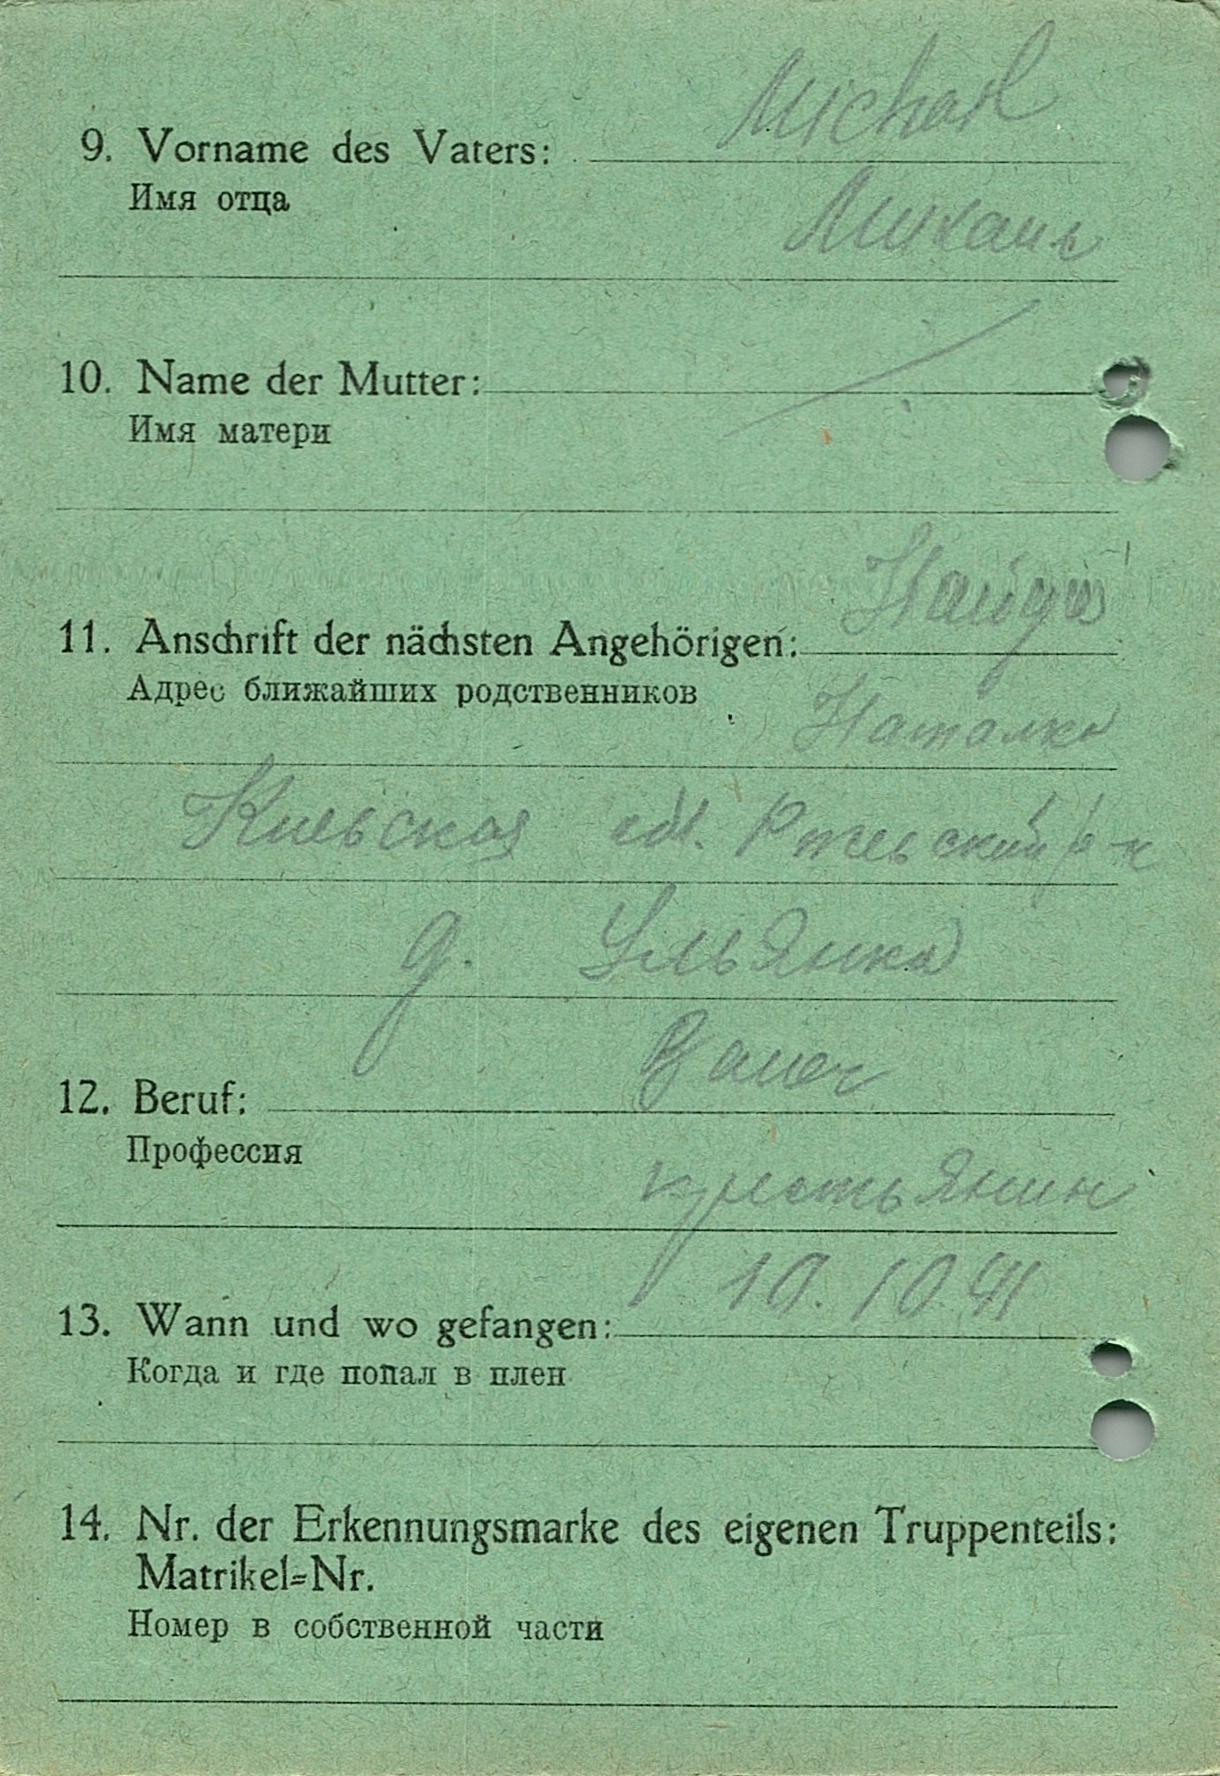 9. Vorname des Vaters: Michail
Имя отца
Михаил
10. Name der Mutter:
Имя матери
Найда
11. Anschrift der nächsten Angehörigen:
Адрес ближайших родственников
Наталка
Киевская обл. Ржевский р-н
д. Ульянка
Bauer
12. Beruf:
Профессия
крестьянин
10.10.41
13. Wann und wo gefangen:
Когда и где попал в плен
14. Nr. der Erkennungsmarke des eigenen Truppenteils:
Matrikel=Nr.
Номер в собственной части